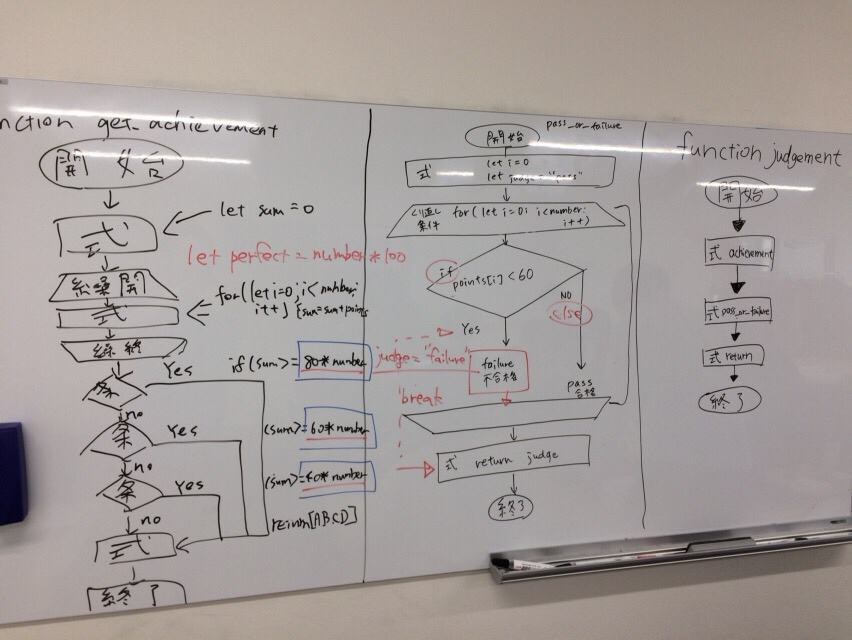 nction get_achievement
開始
式
let sum = 0
let perfect = number * 100
繰開
for(let i=0; i<number;
i++) {sum=sum+points
式
繰終
条
Yes
if (sum) >= 80*number
no
条
Yes
(sum) >= 60*number
no
条
Yes
(sum) >= 40*number
no
return[ABCD]
式
終了
pass_or_failure
開始
式
let i=0
let judge="pass"
くり返し
条件
for(let i=0; i<number;
i++)
if
points[i]<60
NO
else
Yes
judge="failure"
failure
不合格
break
pass
合格
式 return judge
終了
function judgement
開始
式 achievement
式 pass_or_failure
式 return
終了